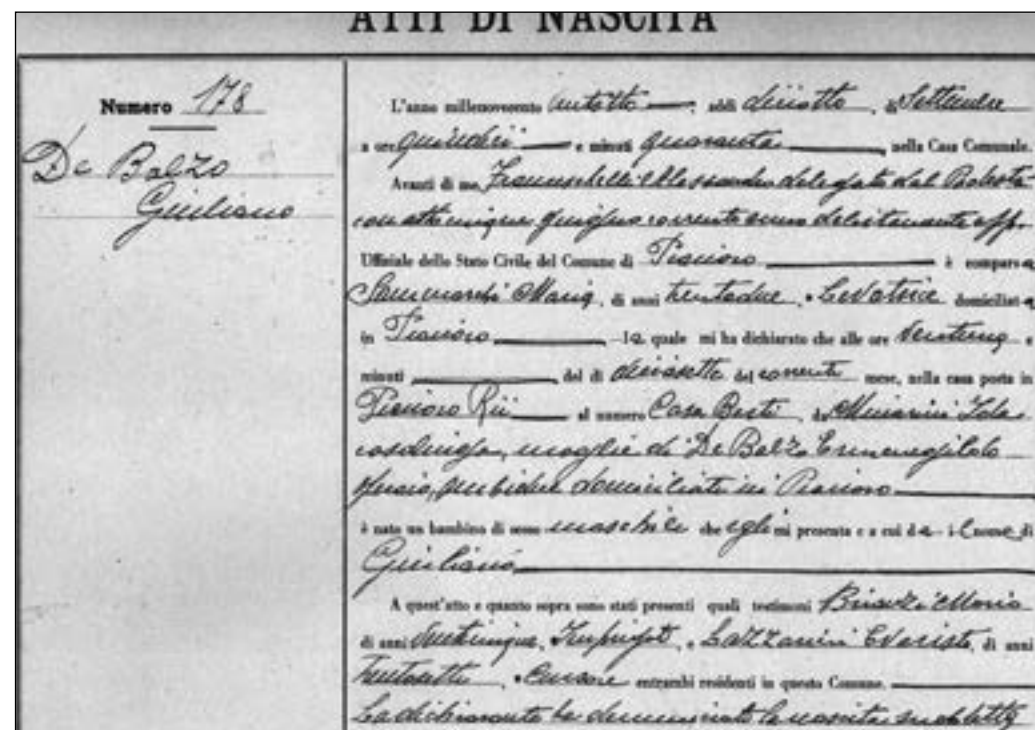 ATTI DI NASCITA
Numero 178
De Balzo
Giuliano
L'anno millenovecento trentotto, addì diciotto, di Settembre
a ore quindici e minuti quaranta, nella Casa Comunale.
Avanti di me, Alessandro delegato dal Podestà
con atto cinque giugno corrente anno
Ufficiale dello Stato Civile del Comune di Pianoro è comparsa
Sammarchi Maria, di anni trentadue, Levatrice domiciliata
in Pianoro la quale mi ha dichiarato che alle ore ventuna e
minuti del dì diciasette del corrente mese, nella casa posta in
Pianoro al numero Casa, da
casalinga, moglie di De Balzo Ermenegildo
domiciliati in Pianoro
è nato un bambino di sesso maschile che egli mi presenta e a cui dà il nome di
Giuliano
A quest'atto e quanto sopra sono stati presenti quali testimoni Mario
di anni, Impiegato, e Lazzarini Evaristo, di anni
trentasette, Cursore entrambi residenti in questo Comune.
La dichiarante ha denunciato la nascita suddetta